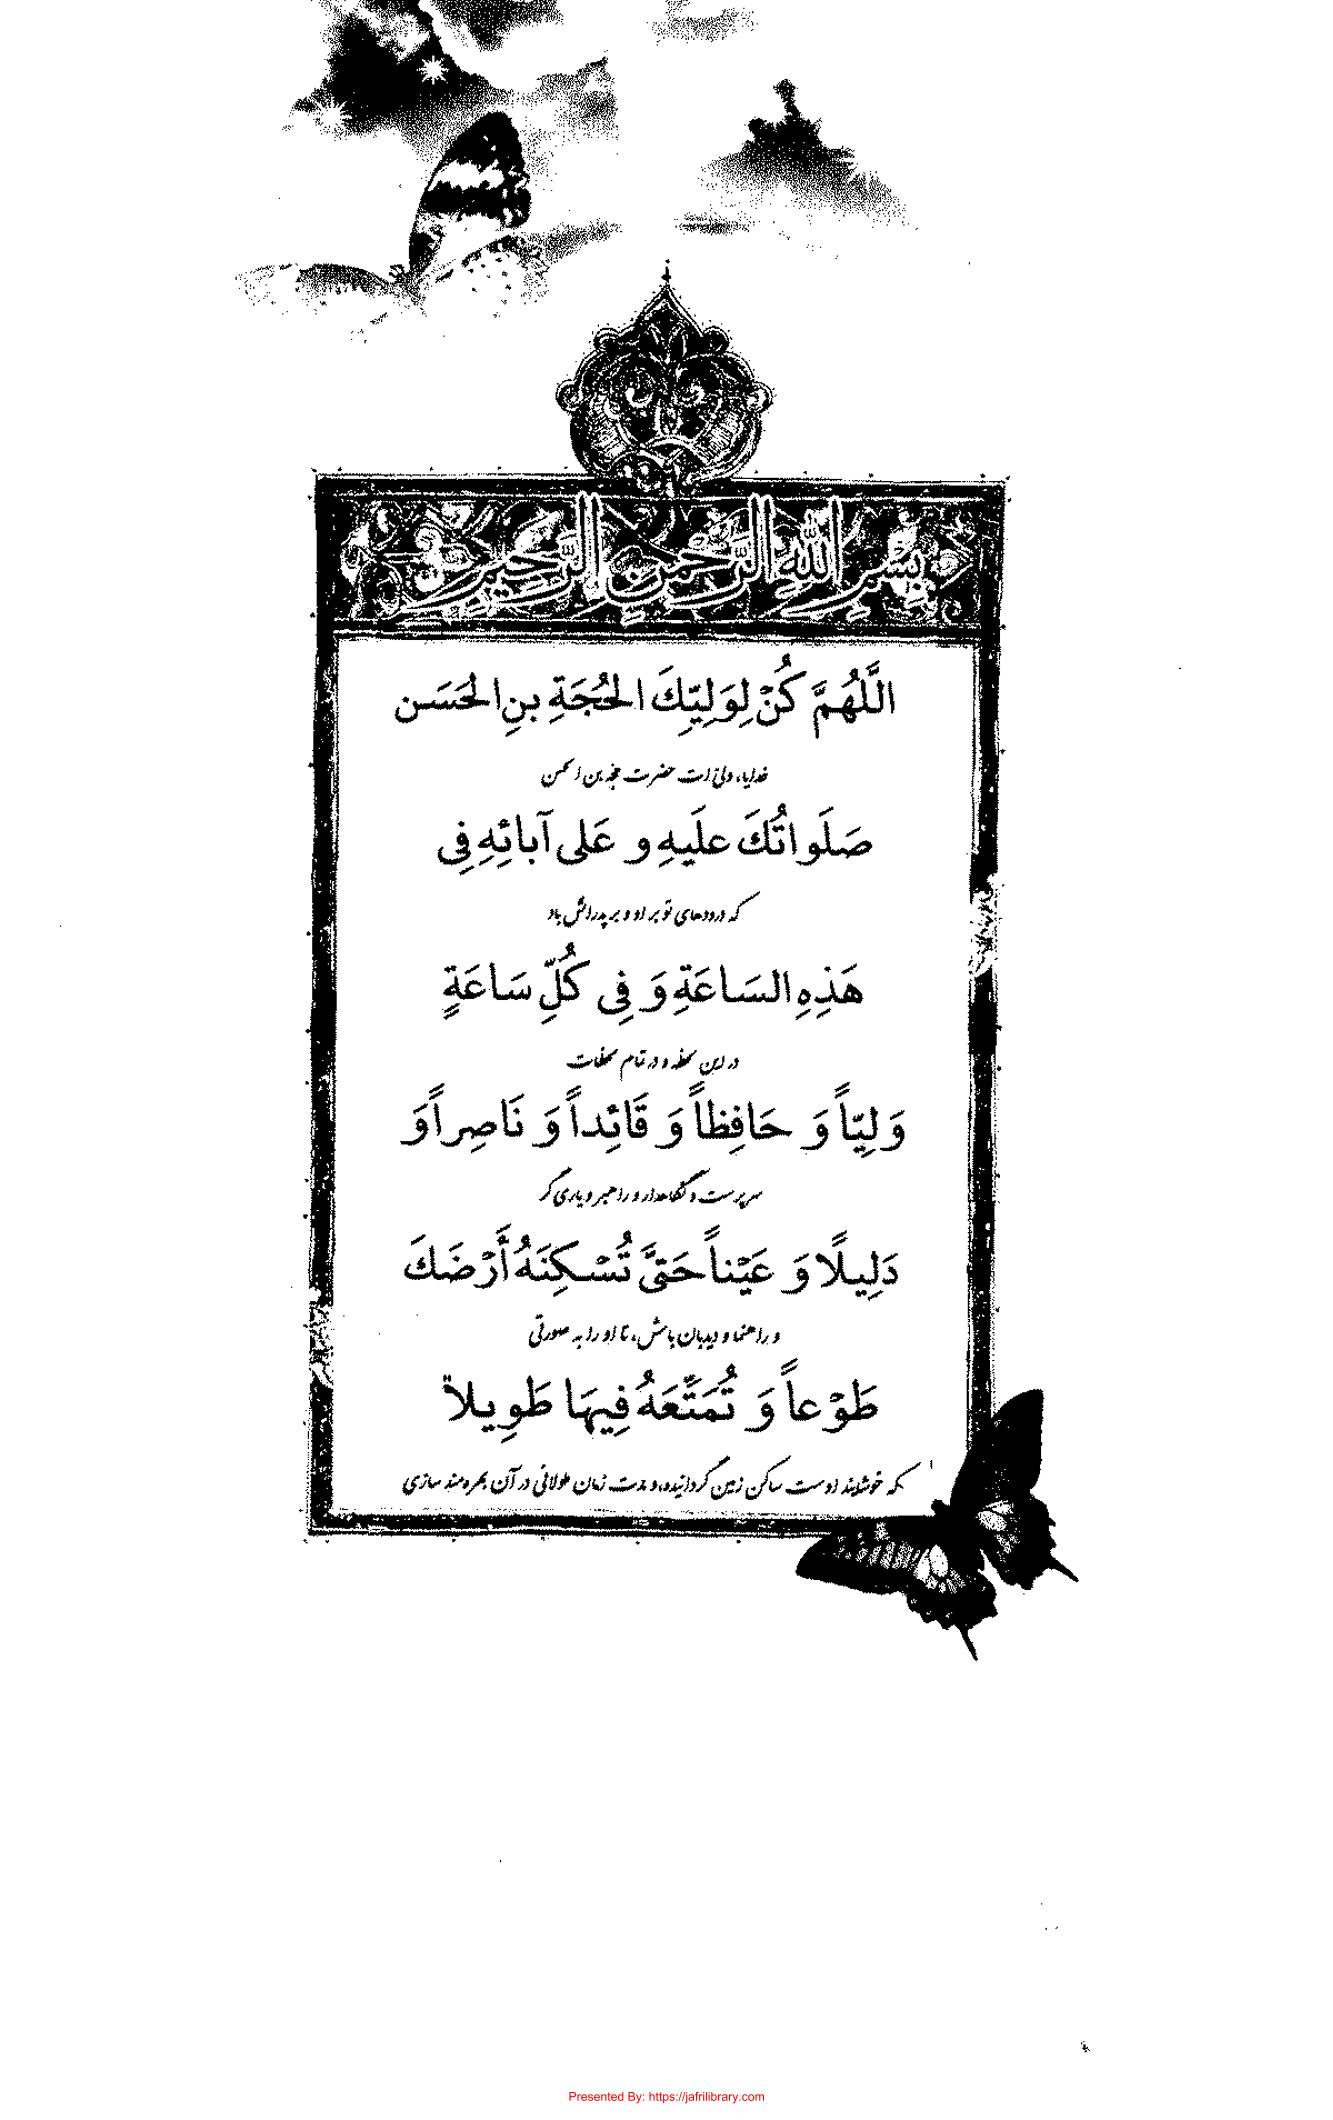 بِسْمِ اللهِ الرَّحْمنِ الرَّحِيمِ
اللَّهُمَّ كُنْ لِوَلِيِّكَ الحُجَةِ بنِ الحَسَن
خدایا، ولیّ ات حضرت حجة بن الحسن
صَلَواتُكَ علَيهِ و عَلى آبائِهِ فِی
که درودهای تو بر او و بر پدرانش باد
هَذِهِ السَاعَةِ وَ فِی كُلِّ سَاعَةٍ
در این لحظه و در تمام لحظات
وَلِيّاً وَ حَافِظاً وَ قَائِداً وَ نَاصِراً وَ
سرپرست و نگاهدار و راهبر و یاری گر
دَلِيلًا وَ عَيْناً حَتَّى تُسْكِنَهُ أَرْضَكَ
و راهنما و دیدبان باش، تا او را به صورتی
طَوْعاً وَ تُمَتِّعَهُ فِيهَا طَوِيلاً
که خوشایند اوست ساکن زمین گردانیده، و مدت زمان طولانی در آن بهره مند سازی
Presented By: https://jafrilibrary.com